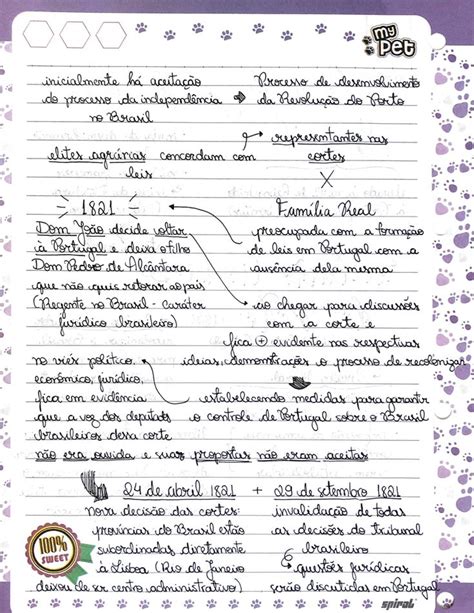 my
pet
inicialmente há aceitação
do processo da independência →
no Brasil
Processo de desenvolvimento
da Revolução do Porto
→ representantes nas
cortes
elites agrárias concordam com
leis
X
1821
Família Real
Dom João decide voltar
à Portugal e deixa o filho
Dom Pedro de Alcântara
que não quis retorar ao país
(Regente no Brasil - caráter
jurídico brasileiro)
preocupada com a formação
de leis em Portugal com a
ausência dela mesma
ao chegar para discussões
com a corte e
fica + evidente nas respectivas
ideias, demonstrações o processo de recolonizar
no viés político,
econômico, jurídico,
fica em evidência
que a voz dos deputados
brasileiros dessa corte
não era ouvida e suas propostas não eram aceitas
estabelecendo medidas para garantir
o controle de Portugal sobre o Brasil
24 de abril 1821 + 29 de setembro 1821
nova decisão das cortes:
províncias do Brasil estão
subordinadas diretamente
à Lisboa (Rio de Janeiro
deixou de ser centro administrativo)
invalidação de todas
as decisões do Tribunal
brasileiro
questões jurídicas
serão discutidas em Portugal
100%
SWEET
spiral